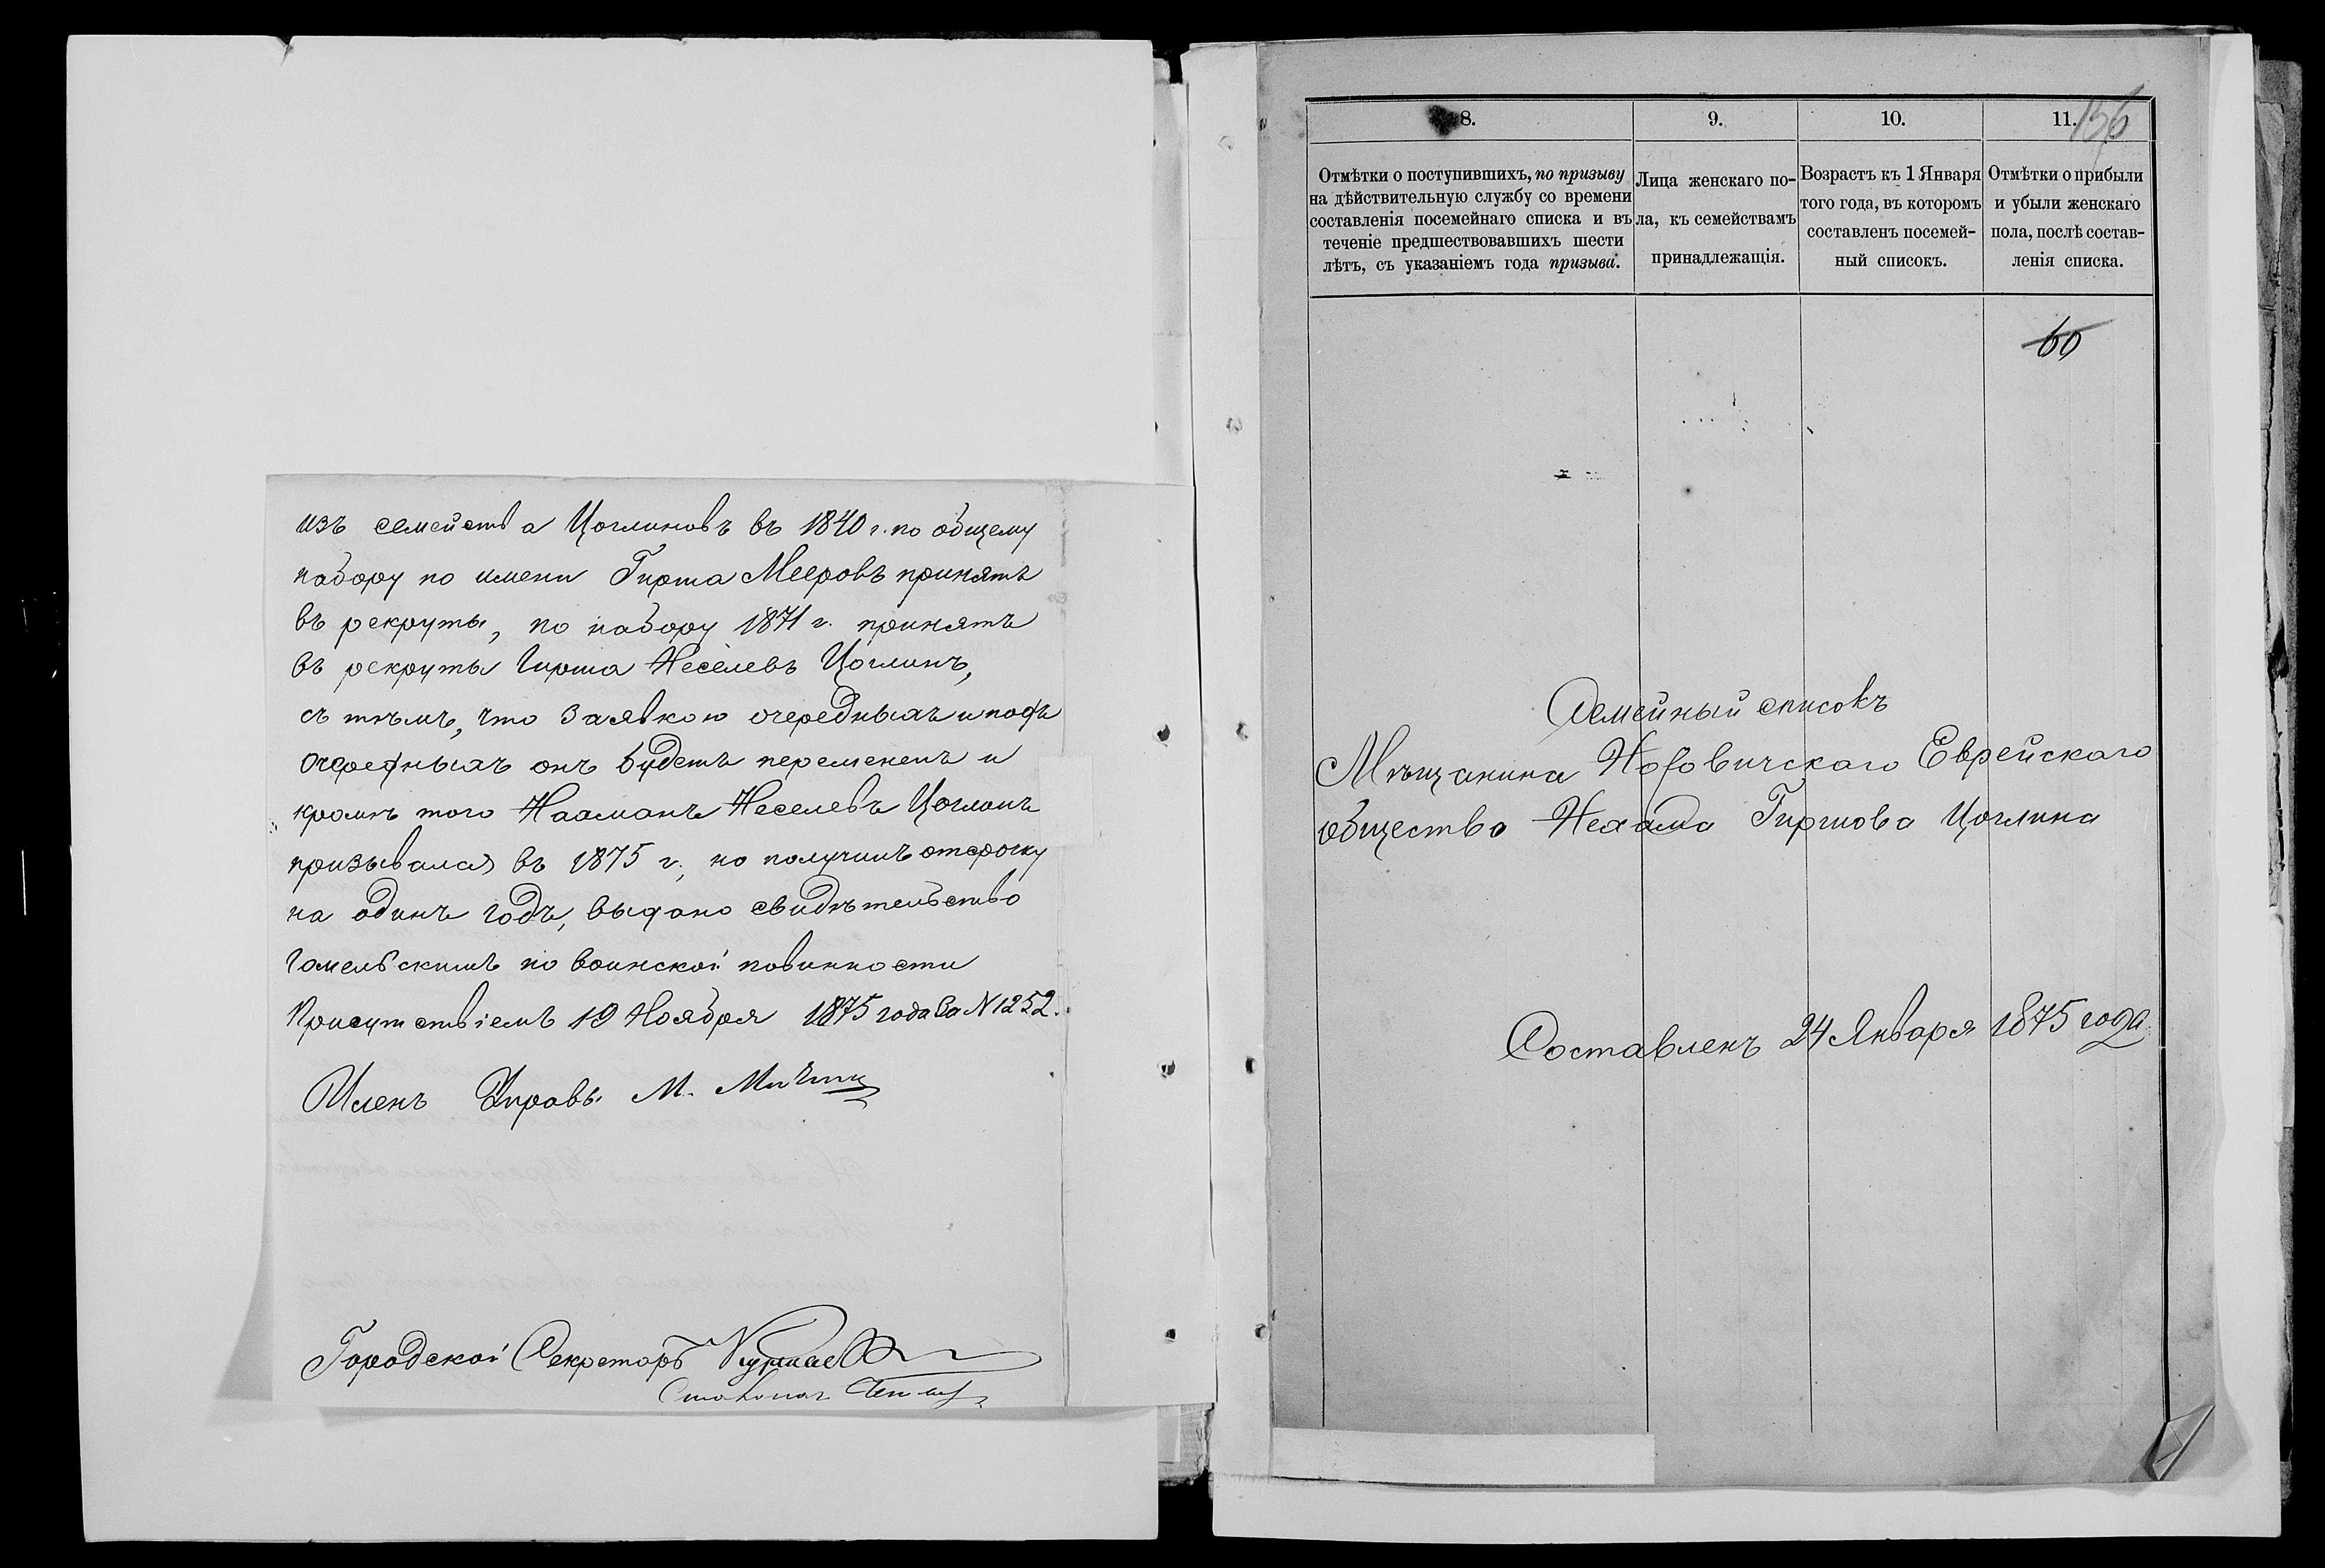 изъ семейства Цоглиновъ въ 1840 г. по общему
набору по имени Гирша Мееровъ принятъ
въ рекруты, по набору 1871 г. принятъ
въ рекруты Гирша Неселевъ Цоглинъ,
съ тѣмъ, что заявкою очередныхъ и подъ
очередныхъ онъ будетъ перемененъ и
кромѣ того Нааманъ Неселевъ Цоглинъ
призывался въ 1875 г., но получилъ отсрочку
на одинъ годъ, выдано свидѣтельство
Гомельскимъ по воинской повинности
Присутствіемъ 19 Ноября 1875 года за N 1252.
Членъ Управы М.
Городской Секретарь
8.
9.
10.
11.
136
Отмѣтки о поступившихъ, по призыву
на дѣйствительную службу со времени
составленія посемейнаго списка и въ
теченіе предшествовавшихъ шести
лѣтъ, съ указаніемъ года призыва.
Лица женскаго по-
ла, къ семействамъ
принадлежащія.
Возрастъ къ 1 Января
того года, въ которомъ
составленъ посемей-
ный списокъ.
Отмѣтки о прибыли
и убыли женскаго
пола, послѣ состав-
ленія списка.
60
Семейный списокъ
Мѣщанина Новинскаго Еврейскаго
общество Нехама Гиршова Цоглина
Составленъ 24 Января 1875 года